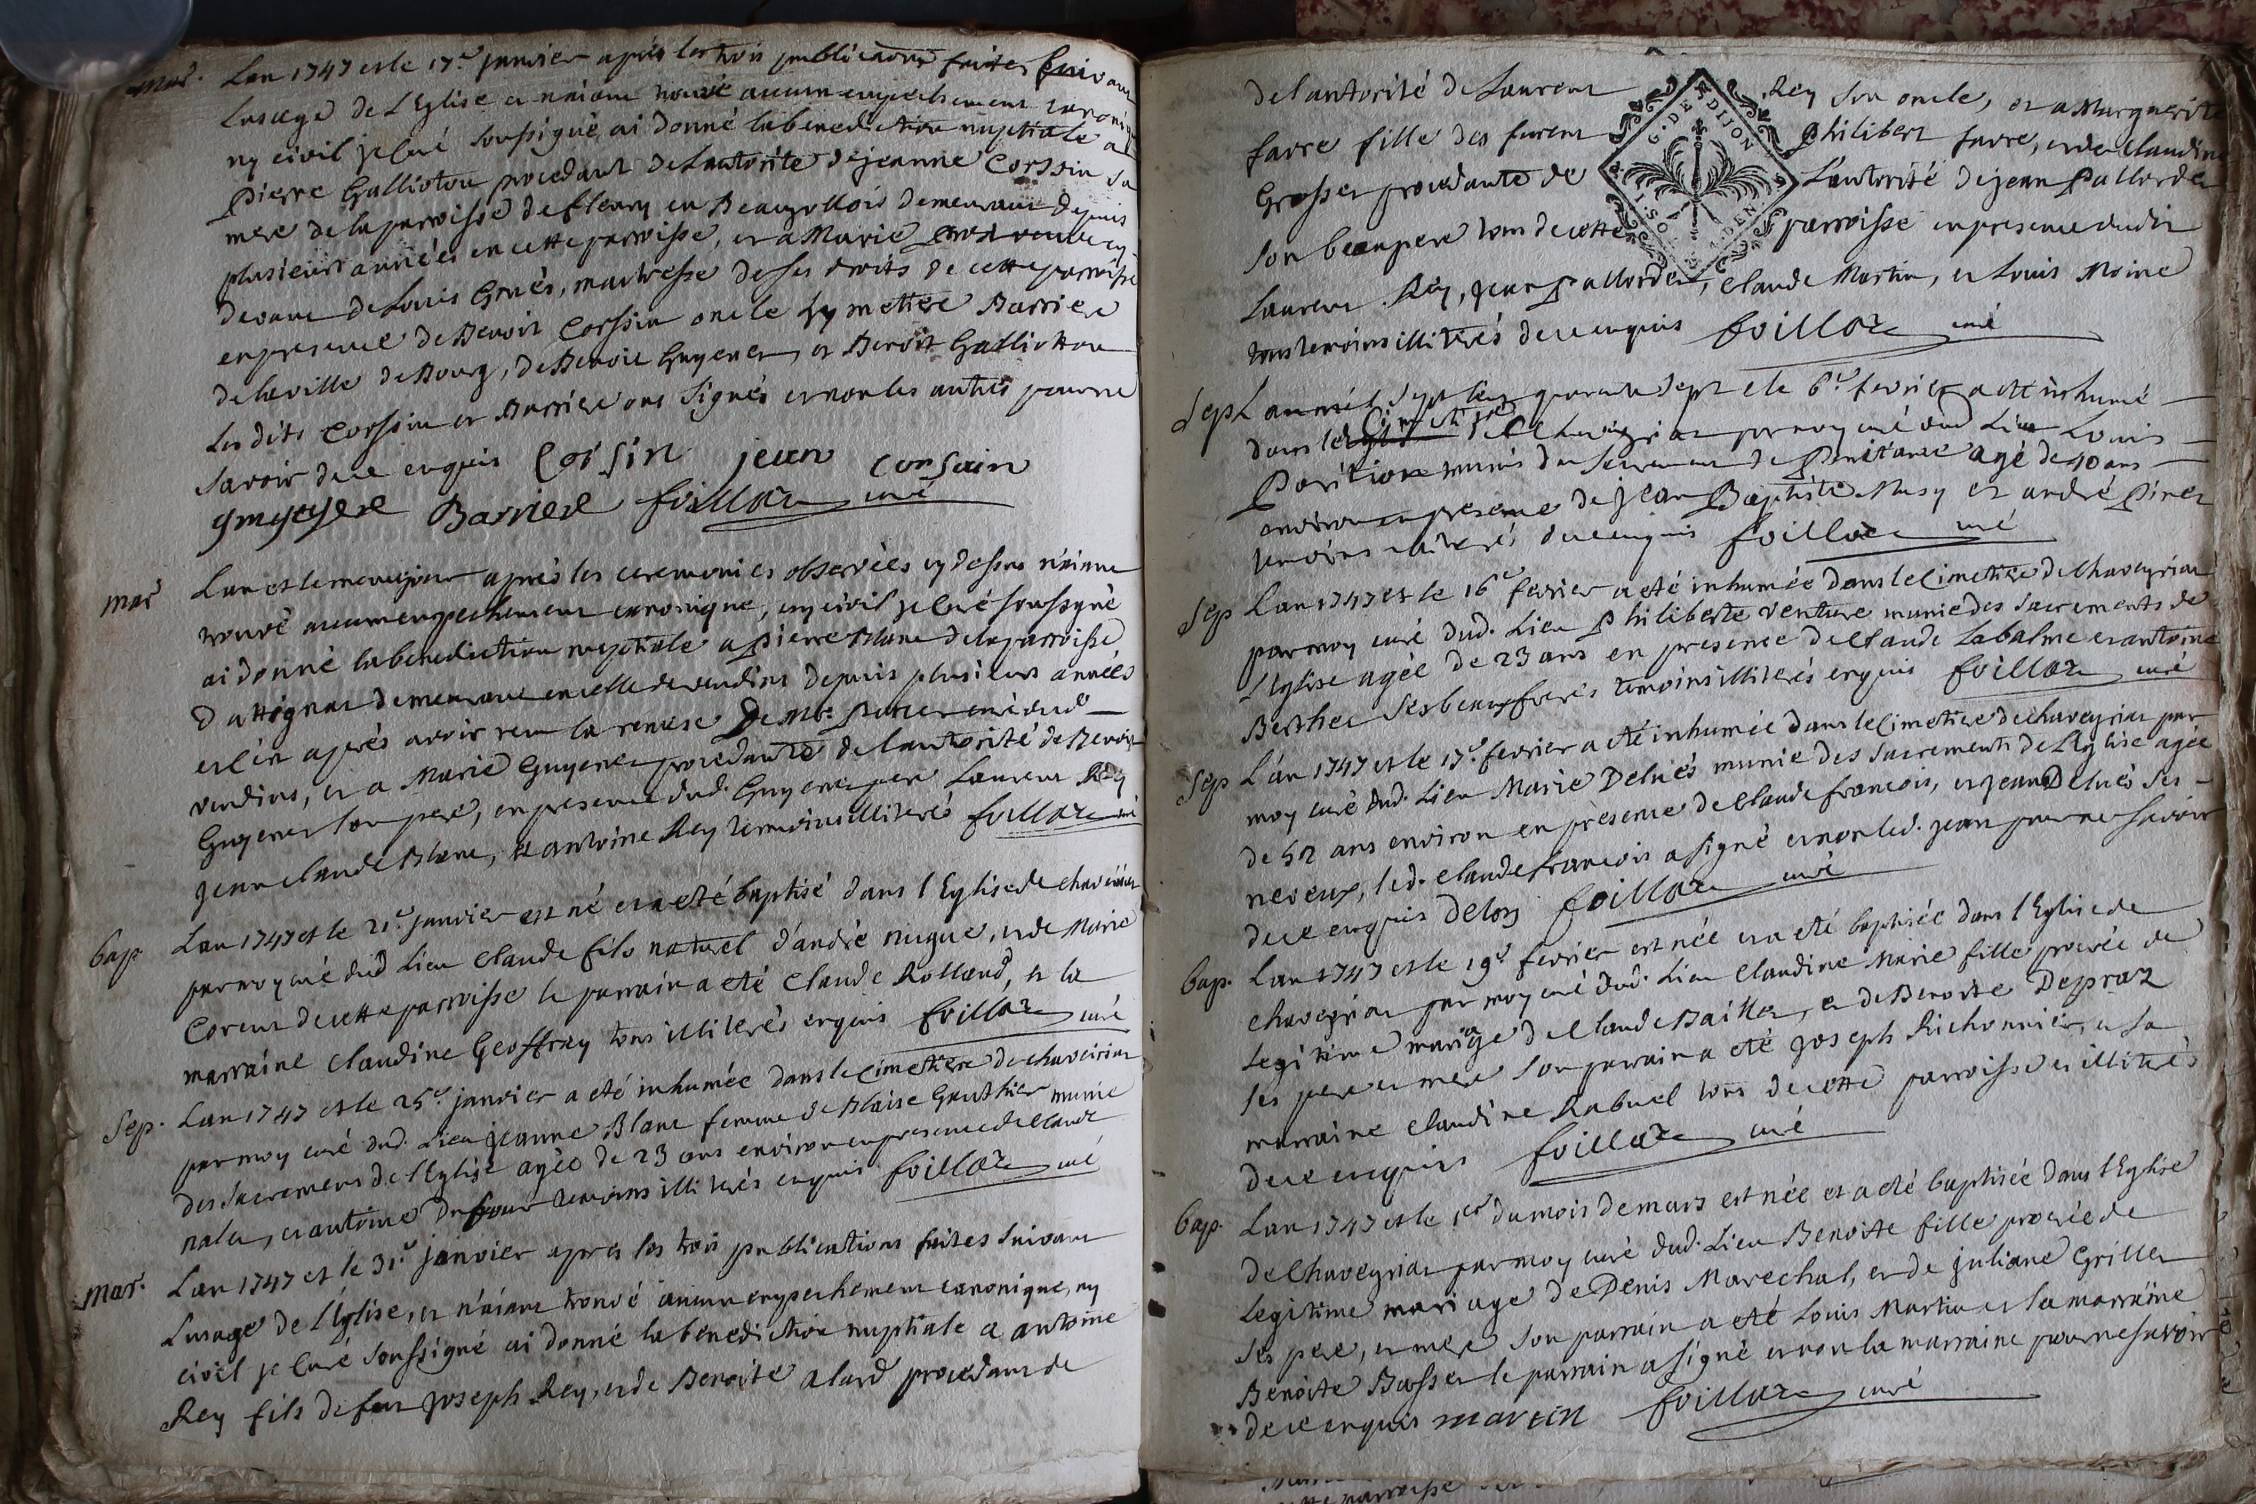 mar. Lan 1747 et le 17e janvier apres les trois publications faites suivant
Lusage de L'Eglise et n'aiant trouvé aucun empechement canonique
ny civil je curé soussigné ai donné la benediction nuptiale a
Pierre Galliotou procedant de Lautorité de jeanne Corssin sa
mere de la parroisse de fleury en Beaujollois demeurant depuis
plusieurs années en cette parroisse, et a Marie
devant de Louis Gruès, maitresse de ses droits de cette parroisse
en presence de Benoit Corssin oncle Barriere
de la ville de Bourg, de Benoit Guyenet, et Benoit Galliottou
Les dits Corssin et Barriere ont signés et non les autres pour ne
savoir de ce enquis Corsin jean Corsain
Barriere foillaz curé
mar Lan et le meme jour après les ceremonies observées cy dessus n'aiant
trouvé aucun empechement canonique, ny civil je curé soussigné
ai donné la benediction nuptiale a Pierre Blanc de la parroisse
d'attignat demeurant en celle de vendins depuis plusieurs années
et l'en après avoir reçu la remise De Mr. curé dud.
vendins, et a Marie Guyenet procedante de l'autorité de Benoit
Guyenet son pere, en presence dud. Guyenet pere, Laurent Rey
jean claude Blanc, et antoine Rey temoins illiterés foillaz curé
bap Lan 1747 et le 21e janvier est né et a eté baptisé dans l'Eglise de chaveiriat
par moy curé dud Lieu claude fils naturel d'andré nugue, et de Marie
Corent de cette parroisse le parrain a eté claude Rolland, et la
marraine claudine Geoffray tous illiterés enquis foillaz curé
Sep. Lan 1747 et le 25e janvier a eté inhumée dans le cimetiere de chaveiriat
par moy curé dud. Lieu jeanne Blanc femme de Blaise Gauthier munie
des sacremens de l'Eglise agée de 23 ans environ en presence de claude
nalet, et antoine Dufour temoins illiterés enquis foillaz curé
mar. Lan 1747 et le 31e janvier apres les trois publications faites suivant
Lusage de L'Eglise, et n'aiant trouvé aucun empechement canonique, ny
civil je curé soussigné ai donné la benediction nuptiale a antoine
Rey fils de feu Joseph Rey, et de Benoite alard procedant de
de l'autorité de Laurent Rey son oncle, et a Marguerite
favre fille des furent Philibert favre, et de claudine
Grosset procedante de L'autorité de jean Pallordet
son beaupere tous de cette parroisse en presence dudit
Laurent Rey, jean Pallordet, claude Martin, et Louis Moine
tous temoins illiterés de ce enquis foillaz curé
G. DE DIJON
Sep L'an mil sept cent quarante sept et le 6e fevrier a eté inhumé
dans le Cimetiere de Chaveyriat par moy curé dud Lieu Louis
munis du sacrement de Penitance agé de 40 ans
environ en presence de jean Baptiste Musy et andré Pinet
temoins illiterés de ce enquis foillaz curé
Sep Lan 1747 et le 16e fevrier a eté inhumée dans le Cimetiere de chaveyriat
par moy curé dud. Lieu Philiberte venture munie des sacrements de
L'Eglise agée de 23 ans en presence de claude Labalme et antoine
Berthet ses beaux freres temoins illiterés enquis foillaz curé
Sep L'an 1747 et le 17e. fevrier a eté inhumée dans le Cimetiere de chaveyriat par
moy curé dud. Lieu Marie Delués munie des sacrements de L'Eglise agée
de 52 ans environ en presence de claude francois, et jean Delués ses
neveux, led. claude francois a signé et non led. jean pour ne savoir
de ce enquis foillaz curé
bap. Lan 1747 et le 19e fevrier est née et a eté baptisée dans l'Eglise de
chaveyriat par moy curé dud. Lieu claudine Marie fille procrée de
legitime mariage de claude Baillet, et de Benoite Depraz
ses pere et mere son parrain a eté joseph Richonnier, et la
marraine claudine Rabuel tous de cette parroisse et illiterés
de ce enquis foillaz curé
bap. Lan 1747 et le 1er du mois de mars est née et a eté baptisée dans l'Eglise
de chaveyriat par moy curé dud. Lieu Benoite fille procrée de
legitime mariage de Denis Marechal, et de juliane Grillet
ses pere, et mere son parrain a eté Louis Martin et la marraine
Benoite Bosset le parrain a signé et non la marraine pour ne savoir
de ce enquis martin foillaz curé